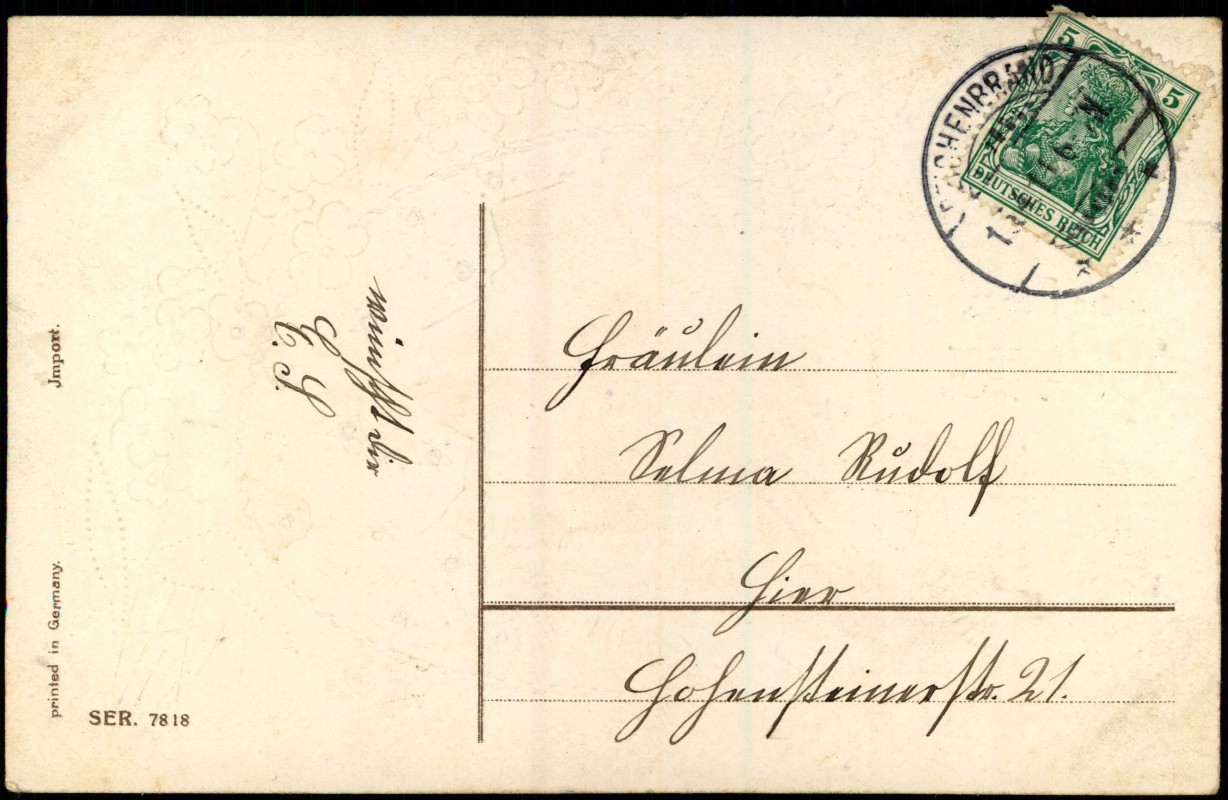 Jmport.
printed in Germany.
SER. 7818
wünscht dir
E. S.
5 5
DEUTSCHES REICH
REICHENBRAND
Fräulein
Selma Rudolf
Hier
Hohensteinerstr. 21.